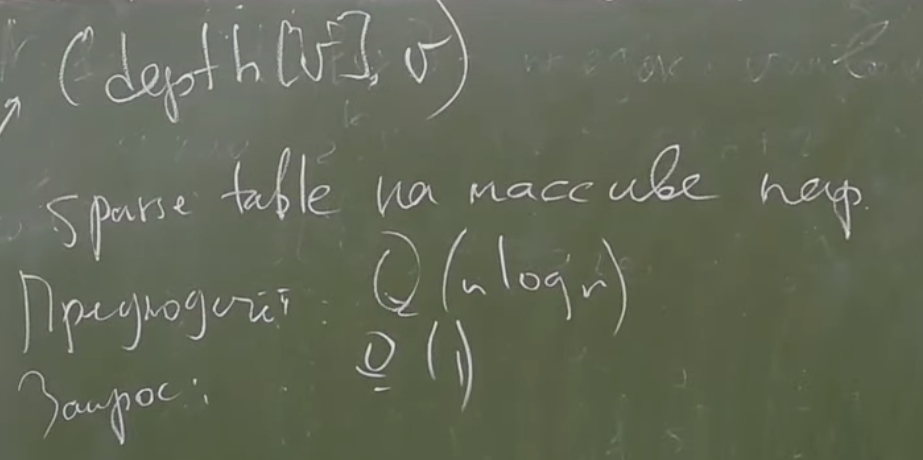 (depth[v], v)
sparse table на массиве пар.
Предподсчёт: O(n log n)
Запрос: O(1)